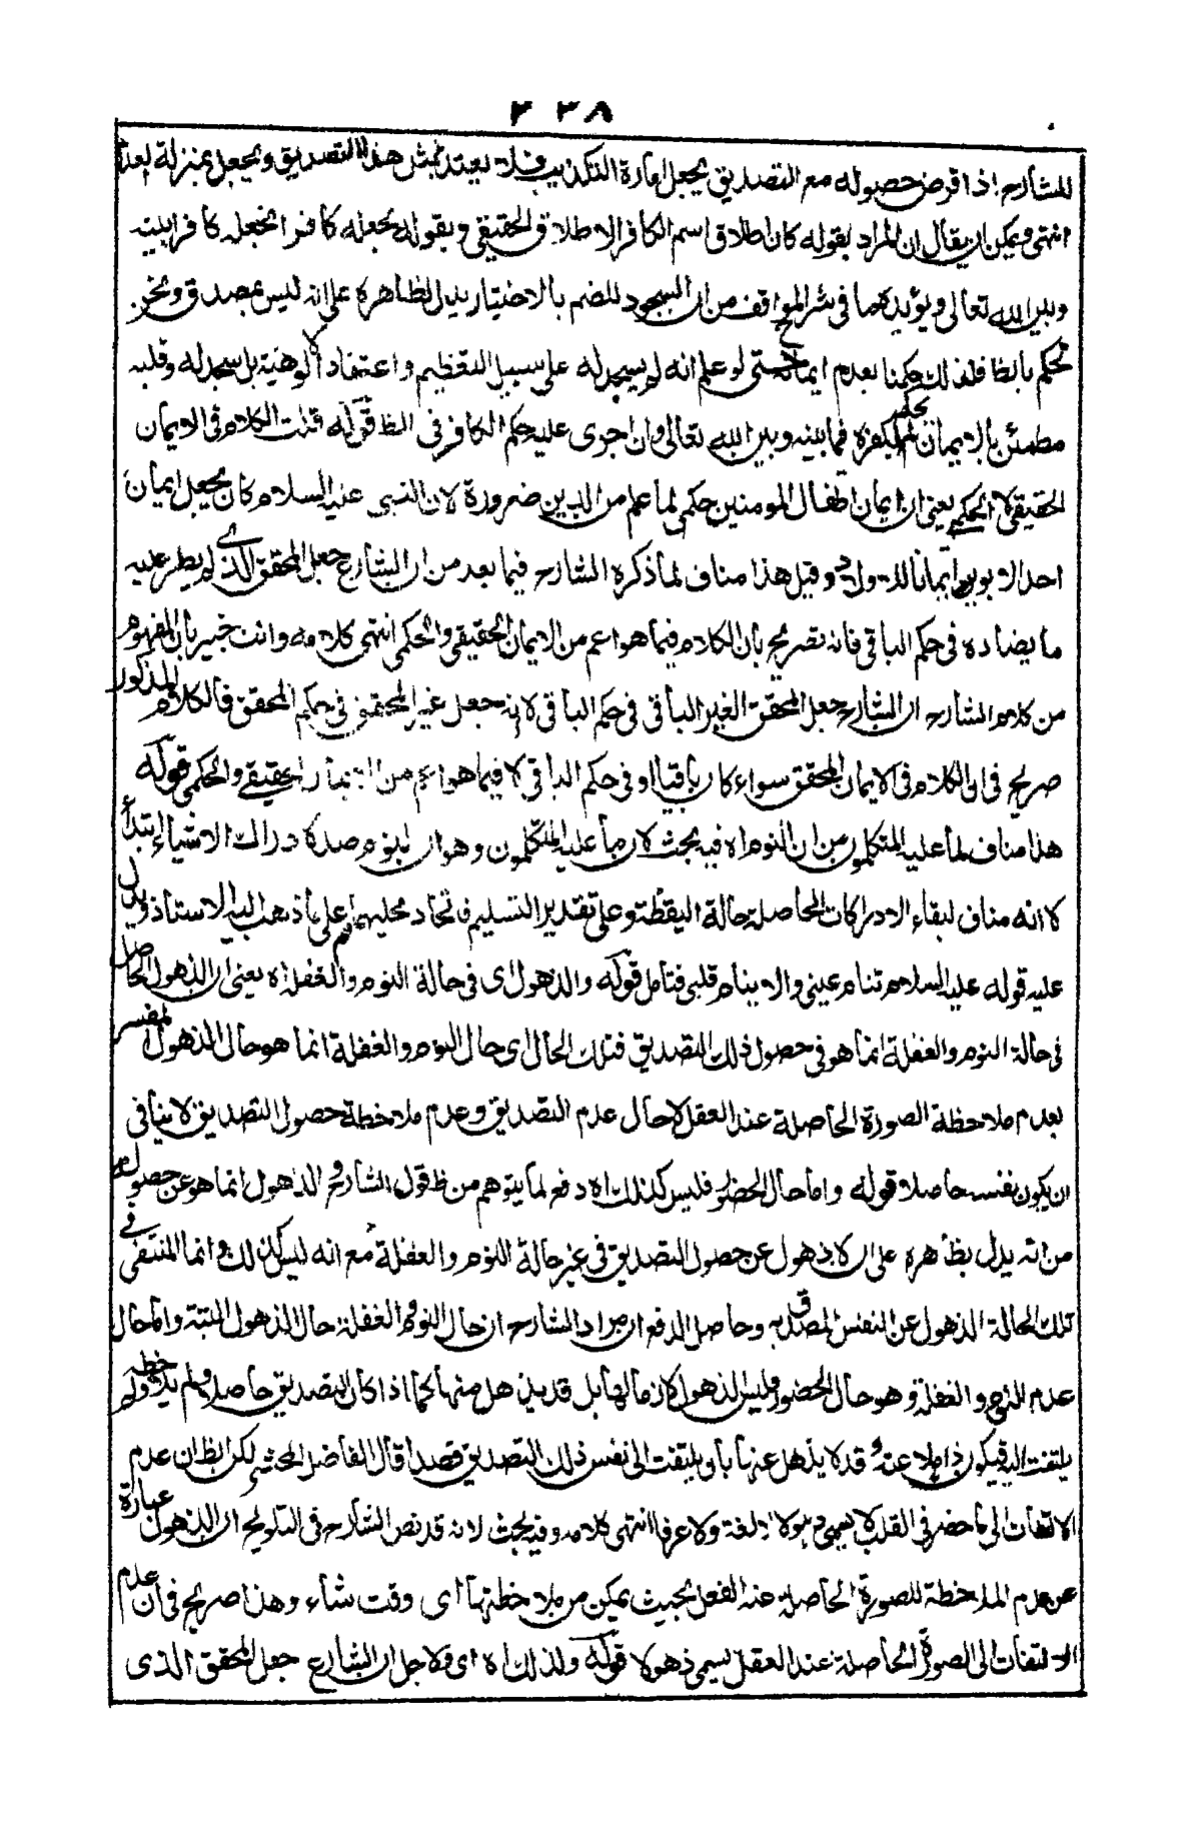 ٢٣٨
للشارح اذا فرض حصوله مع التصديق يجعل امارة التكذيب فلا يعتد بمثل هذا التصديق ويجعل بمنزلة العدم
انتهى ويمكن ان يقال ان المراد بقوله كان اطلاق اسم الكافر الاطلاق الحقيقي وبقوله يجعله كافرا نجعله كافرا بينه
وبين الله تعالى ويؤيده ما في شرح المواقف من ان السجود للصنم بالاختيار يدل بظاهره على انه ليس بمصدق ونحن
نحكم بالظ فلذلك حكمنا بعدم ايمانه حتى لو علم انه لم يسجد له على سبيل التعظيم واعتقاد الالوهية بل سجد له وقلبه
مطمئن بالايمان لم يحكم بكفره فيما بينه وبين الله تعالى وان اجرى عليه حكم الكافر في الظ قوله قلت الكلام في الايمان
الحقيقي لا الحكمي يعني ان ايمان اطفال المومنين حكمي لما علم من الدين ضرورة لان النبي عليه السلام كان يجعل ايمان
احد الابوين ايمانا للاولاد وقيل هذا مناف لما ذكره الشارح فيما بعد من ان الشارع جعل المحقق الذي لم يطرء عليه
ما يضاده في حكم الباقي فانه تصريح بان الكلام فيما هو اعم من الايمان الحقيقي والحكمي انتهى كلامه وانت خبير بان المفهوم
من كلام الشارح ان الشارع جعل المحقق الغير الباقي في حكم الباقي لا انه جعل غير المحقق في حكم المحقق فالكلام المذكور
صريح في ان الكلام في الايمان المحقق سواء كان باقيا او في حكم الباقي لا فيما هو اعم من الايمان الحقيقي والحكمي قوله
هذا مناف لما عليه المتكلمون من ان النوم اه فيه بحث لان ما عليه المتكلمون وهو ان النوم ضد لادراك الاشياء ابتداء
لا انه مناف لبقاء الادراكات الحاصلة حالة اليقظة وعلى تقدير التسليم فاتحاد محليهما على ما ذهب اليه الاستاذ ويدل
عليه قوله عليه السلام تنام عيني ولا ينام قلبي فتامل قوله والذهول اى في حالة النوم والغفلة اه يعني ان الذهول الحاصل
في حالة النوم والغفلة انما هو في حصول ذلك التصديق فتلك الحال اى حال النوم والغفلة انما هو حال الذهول المفسر
بعدم ملاحظة الصورة الحاصلة عند العقل لا حال عدم التصديق وعدم ملاحظة حصول التصديق لا ينافي
ان يكون نفسه حاصلا قوله واما حال الحضور فليس كذلك اه دفع لما يتوهم من ظ قول الشارح والذهول انما هو عن حصوله
من انه يدل بظاهره على ان لا ذهول عن حصول التصديق في غير حالة النوم والغفلة مع انه ليس كذلك وانما المنتفى في
تلك الحالة الذهول عن النفس المصدق به وحاصل الدفع ان مراد الشارح ان حال النوم والغفلة حال الذهول البتة واما حال
عدم النوم والغفلة وهو حال الحضور فليس الذهول لازما لها بل قد يذهل منها كما اذا كان التصديق حاصلا ولم يلاحظه ولم
يلتفت اليه فيكون ذاهلا عنه وقد لا يذهل عنها بان يلتفت الى نفس ذلك التصديق قصدا قال الفاضل المحشي لكن الظ ان عدم
الالتفات الى ما حضر في القلب لا يسمى ذهولا لا لغة ولا عرفا انتهى كلامه وفيه بحث لانه قد نص الشارح في التلويح ان الذهول عبارة
عن عدم الملاحظة للصورة الحاصلة عند العقل بحيث يمكن من ملاحظتها اى وقت شاء وهذا صريح في ان عدم
الالتفات الى الصورة الحاصلة عند العقل يسمى ذهولا قوله ولذلك اه اى ولاجل ان الشارع جعل المحقق الذى